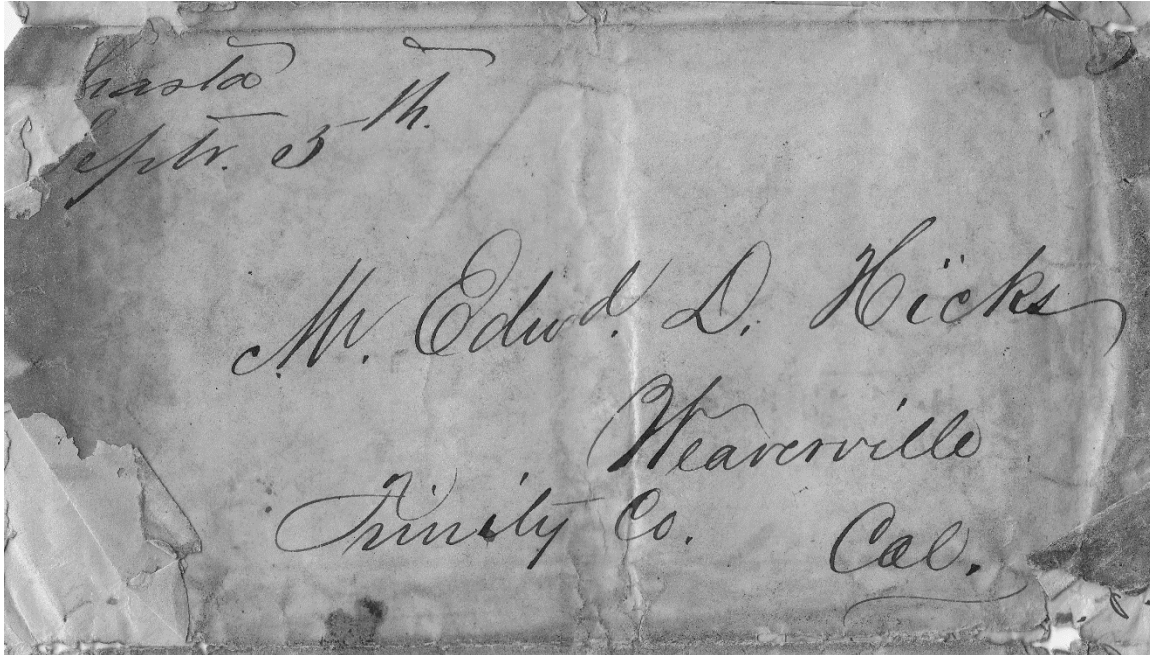 hasta
eptr. 5th.
Mr. Edwd. D. Hicks
Weaverville
Trinity Co. Cal.